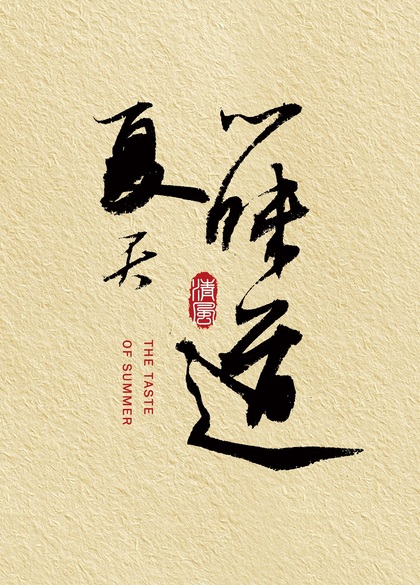 夏天
味道
清風
THE TASTE
OF SUMMER